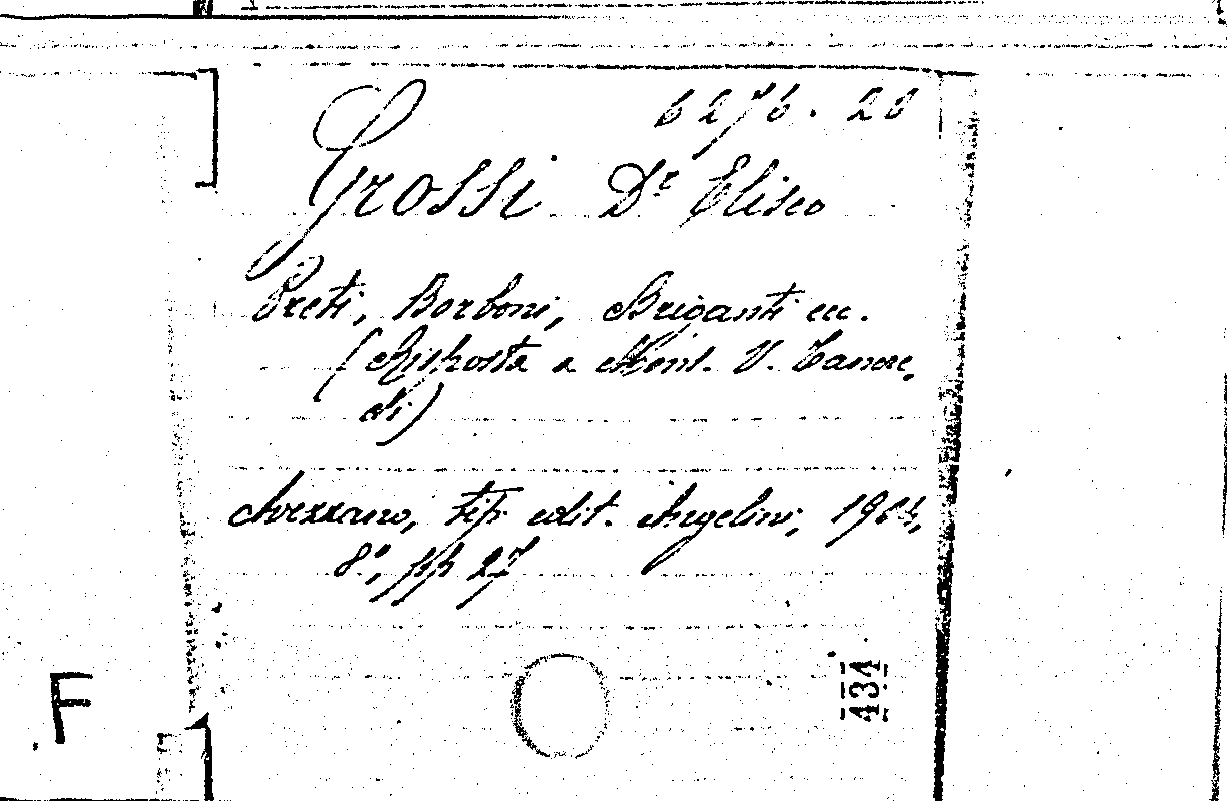 6276. 20
Grossi Dr Eliseo
Preti, Borboni, Briganti ecc.
(Risposta a Mons. V. Tancre,
di)
Avezzano, tip edit. Angelini, 1904,
8°, pp 27
434
F